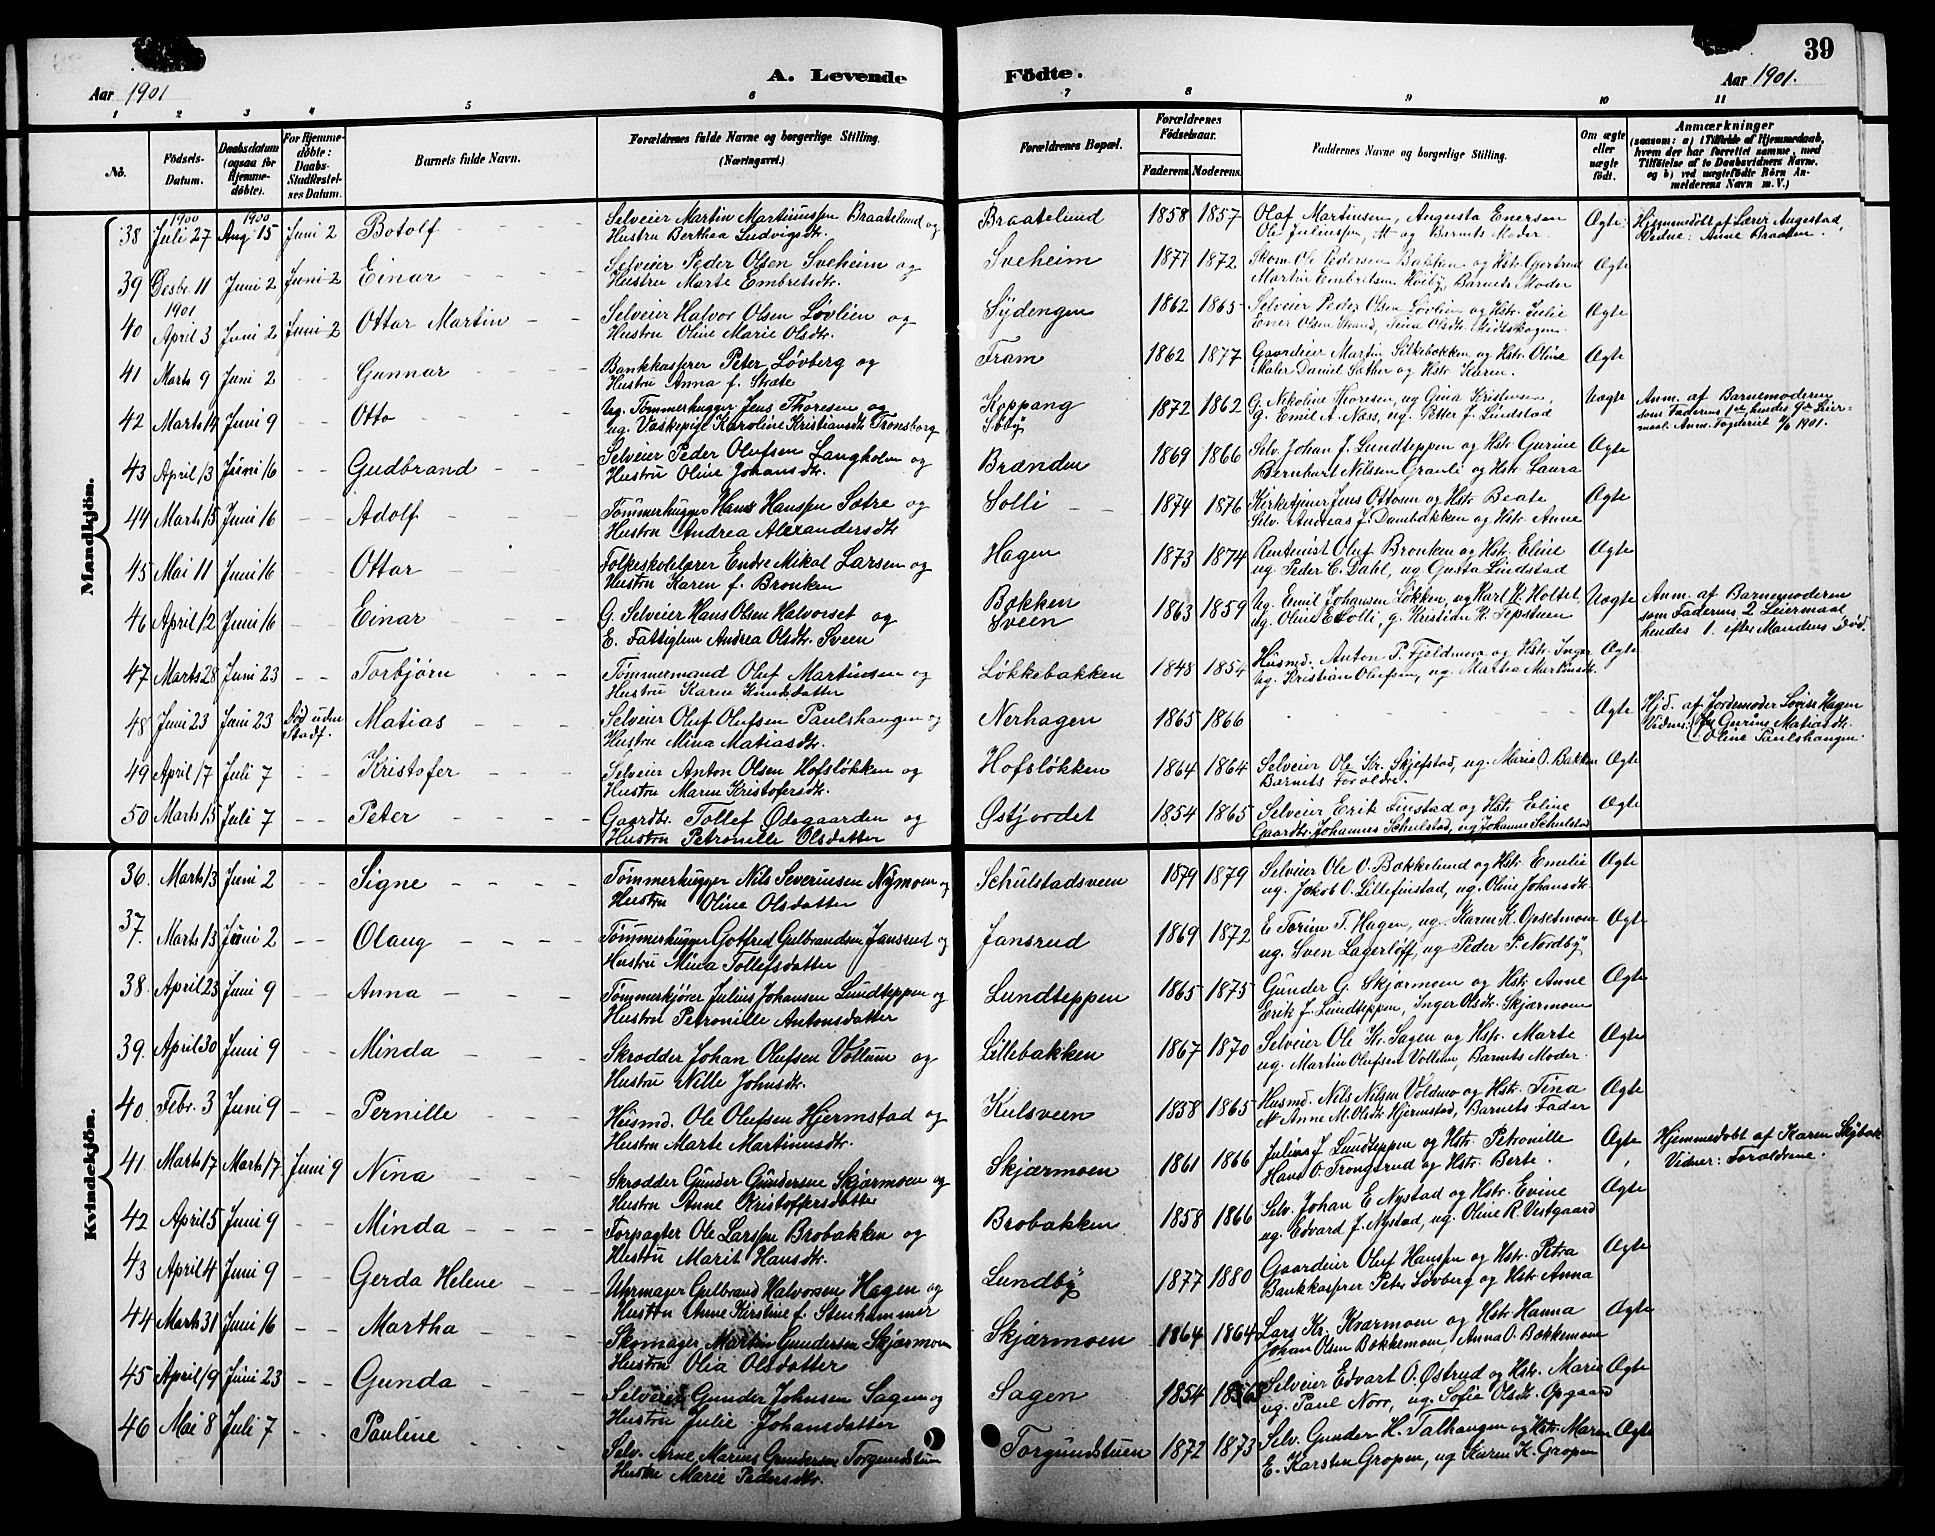 39
A. Levende Födte.
Aar 1901
Aar 1901.
1 2 3 4 5 6 7 8 9 10 11
No.
Födsels-Datum.
Daabsdatum (ogsaa for Hjemme-döbte).
For Hjemme-döbte: Daabs-Stadfæstel-ses Datum.
Barnets fulde Navn.
Forældrenes fulde Navne og borgerlige Stilling. (Næringsvei.)
Forældrenes Bopæl.
Forældrenes Födselsaar.
Faderens. Moderens.
Faddernes Navne og borgerlige Stilling.
Om ægte eller uægte födt.
Anmærkninger
(saasom: a) i Tilfælde af Hjemmedaab, hvem der har forrettet samme, med Tilföielse af to Daabsvidners Navne, og b) ved uægtefödte Börn Anmelderens Navn m. V.)
Mandkjön.
38 1900 Juli 27 1900 Aug 15 Juni 2 Botolf Selveier Martin Martinussen Braatelund og Braatelund 1858 1857 Olaf Martinsen, Augusta Enersen Ægte Hjemmedøbt af Lærer Augestad,
Hustru Berthea Ludvigsdt. Ole Juliussen, og Barnets Moder. Vidne: Anne Braaten.
39 Desbr 11 Juni 2 Juni 2 Einar Selveier Peder Olsen Sveheim og Sveheim 1877 1872 Skom. Ole Pedersen Bakken og Hstr Gjertrud Ægte
Hustru Marte Embretsdt. Martin Embretsen Hviby, Barnets Moder
40 1901 April 3 Juni 2 Juni 2 Ottar Martin Selveier Halvor Olsen Løvlien og Sydengen 1862 1865 Selveier Peder Olsen Løvlien og Hstr Julie Ægte
Hustru Oline Marie Olsdtr. Ener Olsen Strand, Tina Olsdtr. Midtskogen
41 Marts 9 Juni 2 Gunnar Bankkasserer Peter Løvberg og Fram 1862 1877 Gaardeier Martin Silkebækken og Hstr. Oline Ægte
Hustru Anna f. Stræte Maler Daniel Sæther og Hstr Karen.
42 Marts 14 Juni 9 Otto Ug. Tømmerhugger Jens Thoresen og Koppang 1872 1862 G. Nikoline Thoresen, ug Gina Kristensen, Uægte Anm. af Barnemoderen
ug. Vaskepige Karoline Kristiansdt. Tronsborg G. Emil A. Næss, ug. Petter J. Lindstad som Faderens 1ste hendes 9de Leiermaal. Anm. Fogderiet 1901.
43 April 13 Juni 16 Gudbrand Selveier Peder Olufsen Langholm og Brænden 1869 1866 Selv. Johan J. Lundteppen og Hstr Gurine Ægte
Hustru Oline Johansdt. Bernhart Nilsen Granli og Hstr Laura
44 Marts 15 Juni 16 Adolf Tømmerhugger Hans Hanssen Sætre og Solli 1874 1876 Kirketjener Jens Ottosen og Hstr Beate Ægte
Hustru Andrea Alexandersdt Selv. Andreas J. Dambækken og Hstr Anne
45 Mai 11 Juni 16 Ottar Folkeskolelærer Endre Mikal Larsen og Hagen 1873 1874 Rentenist Oluf Bronken og Hstr Eline Ægte
Hustru Karen f. Bronken ug. Peder C. Dahl, ug Gusta Lindstad
46 April 12 Juni 16 Einar G. Selveier Hans Olsen Halvorset og Bækken 1863 1859 Ug. Emil Johansen Løkken, ug Karl K. Holtet Uægte Anm. af Barnemoderen
E. Fattiglem Andrea Olsdt. Sveen Sveen ug. Oline E Solli, g. Kristian K. som Faderens 2 Leiermaal
hendes 1. efter Mandens Død.
47 Marts 28 Juni 23 Torbjørn Tømmermand Oluf Martinsen og Løkkebakken 1848 1854 Husmd. Anton P. Fjeldmora og Hstr. Inger Ægte
Hustru Karen Knudsdatter ug. Kristian Olufsen, ug Martha Martinsdt.
48 Juni 23 Juni 23 Død uden Stadf. Matias Selveier Oluf Olufsen Paulshaugen og Nerhagen 1865 1866 Ægte Hjd. af Jordemoder Lovise Hagen
Hustru Mina Matiasdt. Vidner: Gurine Matiasdt. Oline Paulshaugen.
49 April 17 Juli 7 Kristofer Selveier Anton Olsen Hofsløkken og Hofsløkken 1864 1864 Selveier Ole Kr. Skjefstad, ug. Marie O. Bakken Ægte
Hustru Maren Kristofersdt. Barnets Forældre.
50 Marts 15 Juli 7 Peter Gaardbr. Tollef Ødegaarden og Østjordet 1854 1865 Selveier Erik Finstad og Hstr Eline Ægte
Hustru Petronille Olsdatter Gaardbr. Johannes Schulstad, ug Johanne Schulstad
Kvindekjön.
36. Marts 13 Juni 2 Signe Tømmerhugger Nils Severinsen Nymoen og Schulstadsveen 1879 1879 Selveier Ole O. Bækkelund og Hstr. Emilie Ægte
Hustru Oline Olsdatter ug. Jakob O. Lillefinstad, ug. Oline Johansdtr.
37. Marts 13 Juni 2 Olaug Tømmerhugger Gotfred Gulbrandsen Jansrud og Jansrud 1869 1872 E. Torine T. Hagen, ug. Karen K. Opsetmoen Ægte
Hustru Mina Tollefsdatter ug. Sven Lagerløff, ug Peder P. Nordby
38. April 23 Juni 9 Anna Tømmerkjører Julius Johansen Lundteppen og Lundteppen 1865 1875 Gunder G. Skjærmoen og Hstr Anne Ægte
Hustru Petronille Antonsdatter Erik J. Lundteppen, Inger Olsdt. Skjærmoen
39. April 30 Juni 9 Minda Skrædder Johan Olufsen Vollum og Lillebakken 1867 1870 Selveier Ole Kr. Sagen og Hstr. Marte Ægte
Hustru Nille Johnsdt. ug. Martin Olufsen Vollum, Barnets Moder.
40 Febr. 3 Juni 9 Pernille Husmd. Ole Olufsen Hjermstad og Kulsveen 1858 1865 Husmd. Nils Nilsen Voldmo og Hstr. Tina Ægte
Hustru Marte Martinusdt. Anne M. Olsdt. Hjermstad, Barnets Fader
41. Marts 17 Marts 17 Juni 9 Nina Skrædder Gunder Gundersen Skjærmoen og Skjærmoen 1861 1866 Julius J Lundteppen og Hstr Petronille Ægte Hjemmedøbt af Karen Skybak
Hustru Anne Kristoffersdatter Hans O. Trongsrud og Hstr. Berte. Vidner: Forældrene.
42 April 5 Juni 9 Minda Forpagter Ole Larssen Brobakken og Brobakken 1858 1866 Selv. Johan E Nystad og Hstr. Evine Ægte
Hustru Marit Hansdt. ug. Edvard J. Nystad, ug. Oline R. Vestgaard
43 April 4 Juni 9 Gerda Helene Uhrmager Gulbrand Halvorsen Hagen og Lundby 1877 1880 Gaardeier Oluf Hanssen og Hstr Petra Ægte
Hustru Anne Kirstine f. Stenhammer Bankkasserer Peter Løvberg og Hstr Anna
44 Marts 31 Juni 16 Martha Skomager Martin Gundersen Skjærmoen Skjærmoen 1864 1864 Lars Kr. Kværmoen og Hstr Hanna Ægte
Hustru Olia Olsdatter Johan Olsen Bækkemoen, Anna O. Bækkemoen
45 April 19 Juni 23 Gunda Selveier Gunder Johnsen Sagen og Sagen 1854 Selveier Edvart O. Østrud og Hstr. Marie Ægte
Hustru Julie Johansdatter ug. Paul Norr, ug. Sofie Olsdt. Opgaard
46 Mai 8 Juli 7 Pauline Selv. Arne Marius Gundersen Torgundstuen Torgundstuen 1872 1873 Selv. Gunder H. Talhaugen og Hstr. Maren Ægte
Hustru Marie Pedersdtr. E. Karsten Gropen, ug Karen K. Gropen